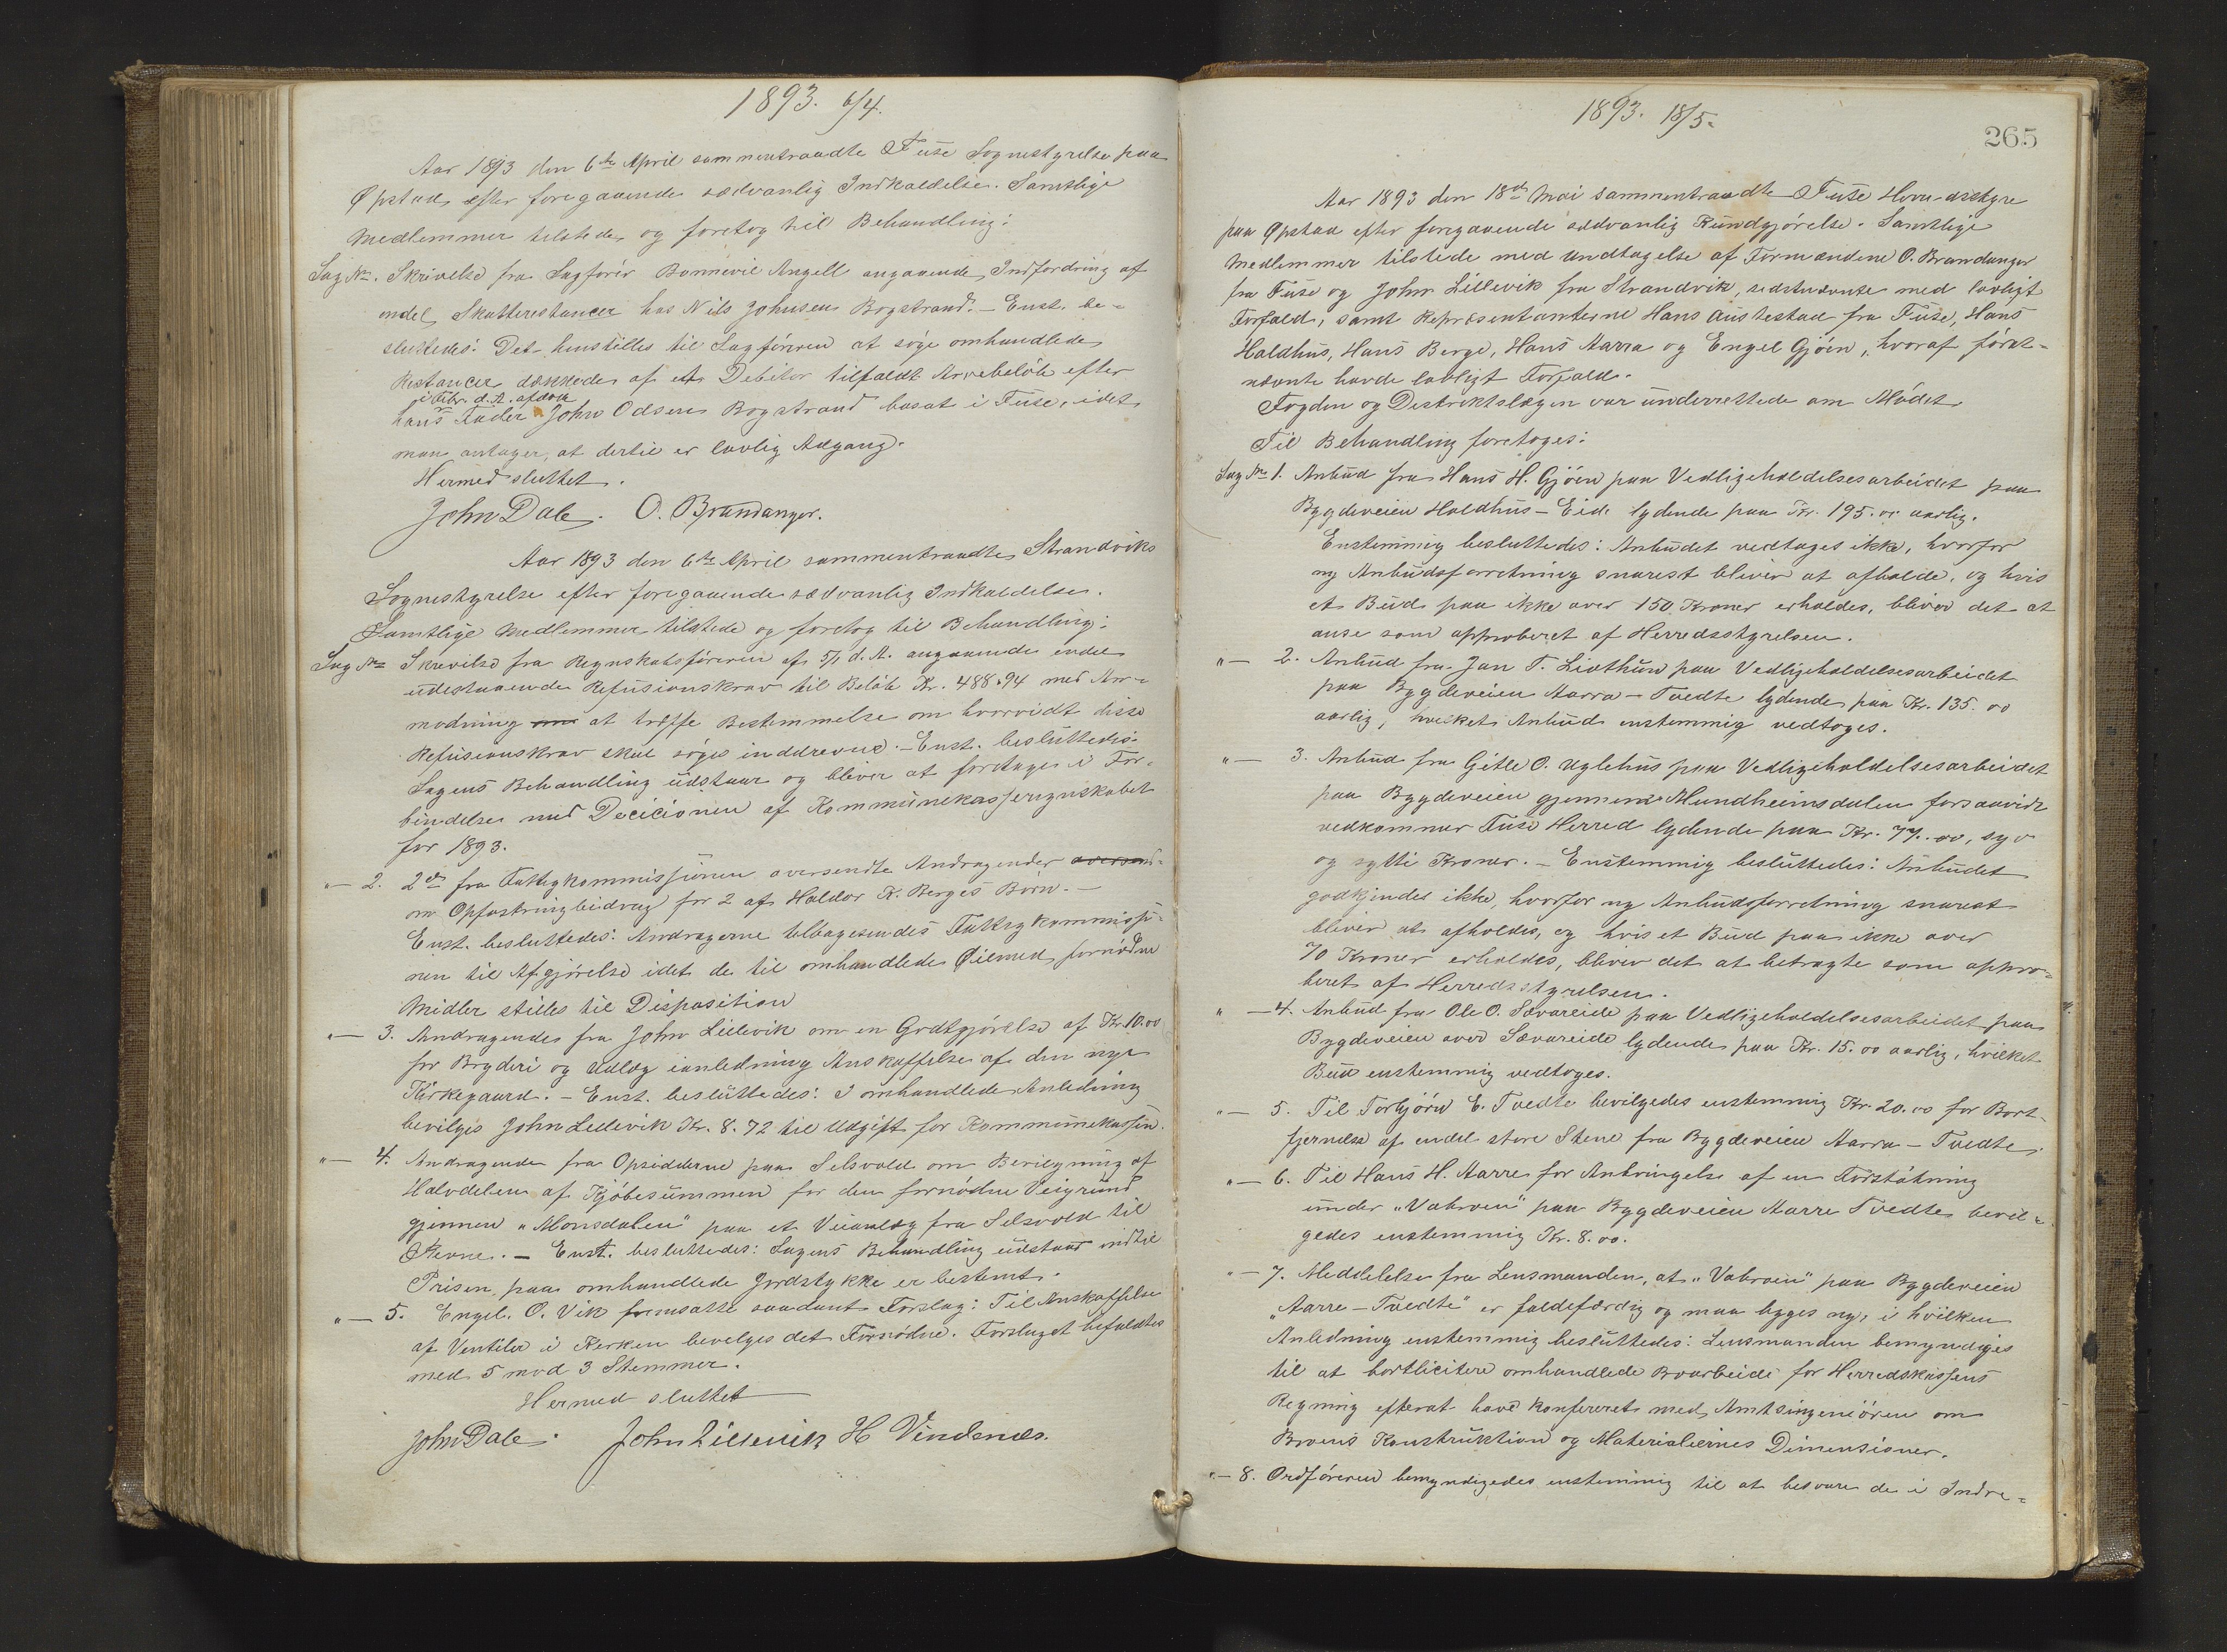 1893. 6/4.
Aar 1893 den 6te April sammentraadte Fuse Sognestyrelse paa
Øpstad efter foregaaende sædvanlig Indkaldelse. Samtlige
Medlemmer tilstede og foretog til Behandling:
Sag No. Skrivelse fra Sagfører Bonnevie Angell angaaende Indfordring af
endel Skatterestancer hos Nils Johnsen Bogstrand. – Enst. be-
sluttedes: Det henstilles til Sagføreren at søge omhandlede
Restancer dækkede af et Debitor tilfaldt Arvebeløb efter
i Febr. d. A. afdøde
hans Fader John Odsen Bogstrand bosat i Fuse, idet
man antager, at dertil er lovlig Adgang.
Hermed sluttet.
John Dale. O. Brandanger.
Aar 1893 den 6te April sammentraadte Strandviks
Sognestyrelse efter foregaaende sædvanlig Indkaldelse.
Samtlige Medlemmer tilstede og foretog til Behandling:
Sag No Skrivelse fra Regnskabsføreren af 5/1 d. A. angaaende endel
udestaaende Refusionskrav til Beløb Kr. 488.94 med An-
modning om at træffe Bestemmelse om hvorvidt disse
Refusionskrav skal søges inddrevne. – Enst. besluttedes:
Sagens Behandling udstaar og bliver at foretages i For-
bindelse med Decicionen af Kommunekasseregnskabet
for 1893.
"— 2. 2de fra Fattigkommissionen oversendte Andragender oversend-
om Opfostringsbidrag for 2 af Haldor K. Berges Børn. –
Enst. besluttedes: Andragerne tilbagesendes Fattigkommissio-
nen til Afgjørelse idet de til omhandlede Øiemed fornødne
Midler stilles til Disposition
"— 3. Andragende fra John Lillevik om en Godtgjørelse af Kr. 10.00
for Bryderi og Udlæg ianledning Anskaffelse af den nye
Kirkegaard. – Enst. besluttedes: I omhandlede Anledning
bevilges John Lillevik Kr. 8.72 til Udgift for Kommunekassen.
"— 4. Andragende fra Opsidderne paa Selsvold om Bevilgning af
Halvdelen af Kjøbesummen for den fornødne Veigrund
gjennem "Monsdalen" paa et Veianlæg fra Selsvold til
Stevne. – Enst. besluttedes: Sagens Behandling udstaar indtil
Prisen paa omhandlede Jordstykke er bestemt.
"— 5. Engel. O. Vik fremsatte saadant Forslag: Til Anskaffelse
af Ventiler i Kirken bevilges det Fornødne. Forslaget befaldtes
med 5 mod 3 Stemmer.
Hermed sluttet
John Dale. John Lillevik H Vindenes.
1893. 18/5.
265
Aar 1893 den 18de Mai sammentraadte Fuse Herredsstyre
paa Øpstad efter foregaaende sædvanlig Kundgjørelse. Samtlige
Medlemmer tilstede med undtagelse af Formændene O. Brandanger
fra Fuse og John Lillevik fra Strandvik, sidstnævnte med lovligt
Forfald, samt Repræsentanterne Hans Austestad fra Fuse, Hans
Haldhus, Hans Berge, Hans Aarra og Engel Gjøen, hvoraf først-
nævnte havde lovligt Forfald.
Fogden og Destriktslægen var underrettede om Mødet.
Til Behandling foretoges:
Sag No 1. Anbud fra Hans H. Gjøen paa Vedligeholdelsesarbeidet paa
Bygdeveien Holdhus – Eide lydende paa Kr. 195.00 aarlig.
Enstemmig besluttedes: Anbudet vedtages ikke, hvorfor
ny Anbudsforretning snarest bliver at afholde, og hvis
et Bud paa ikke over 150 Kroner erholdes, bliver det at
anse som approberet af Herredsstyrelsen.
"— 2. Anbud fra Jan T. Liothun paa Vedligeholdelsesarbeidet
paa Bygdeveien Aarra – Tvedte lydende paa Kr. 135.00
aarlig, hvilket Anbud enstemmig vedtoges.
"— 3. Anbud fra Gitle O. Uglehus paa Vedligeholdelsesarbeidet
paa Bygdeveien gjennem Mundheimsdalen forsaavidt
vedkommer Fuse Herred lydende paa Kr. 77.00, syv
og sytti Kroner. – Enstemmig besluttedes: Anbudet
godkjendes ikke, hvorfor ny Anbudsforretning snarest
bliver at afholdes, og hvis et Bud paa ikke over
70 Kroner erholdes, bliver det at betragte som appro-
beret af Herredsstyrelsen.
"— 4. Anbud fra Ole O. Sævareide paa Vedligeholdelsesarbeidet paa
Bygdeveien over Sævareide lydende paa Kr. 15.00 aarlig, hvilket
Bud enstemmig vedtoges.
"— 5. Til Torbjørn E. Tvedte bevilgedes enstemmig Kr. 20.00 for Bort-
fjernelse af endel store Stene fra Bygdeveien Aarra – Tvedte.
"— 6. Til Hans H. Aarre for Anbringelse af en Forstøtning
under "Vabroen" paa Bygdeveien Aarre Tvedte bevil-
gedes enstemmig Kr. 8.00.
"— 7. Meddelelse fra Lensmanden, at "Vabroen" paa Bygdeveien
"Aarre – Tvedte" er faldefærdig og maa bygges ny, i hvilken
Anledning enstemmig besluttedes: Lensmanden bemyndiges
til at bortlicitere omhandlede Broarbeide for Herredskassens
Regning efterat have konfereret med Amtsingeniøren om
Broens Konstruktion og Materialiernes Dimensioner.
"— 8. Ordføreren bemyndigedes enstemmig til at besvare de i Indre-